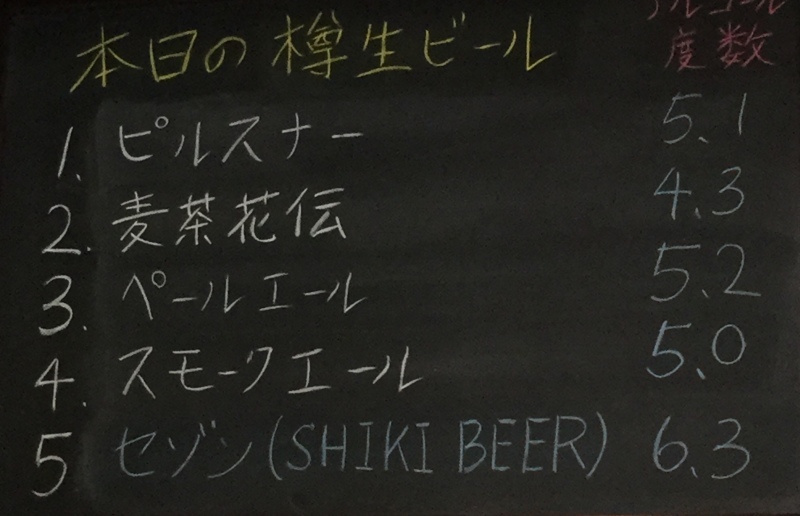 本日の樽生ビール
アルコール
度数
1. ピルスナー 5.1
2. 麦茶花伝 4.3
3. ペールエール 5.2
4. スモークエール 5.0
5 セゾン(SHIKI BEER) 6.3